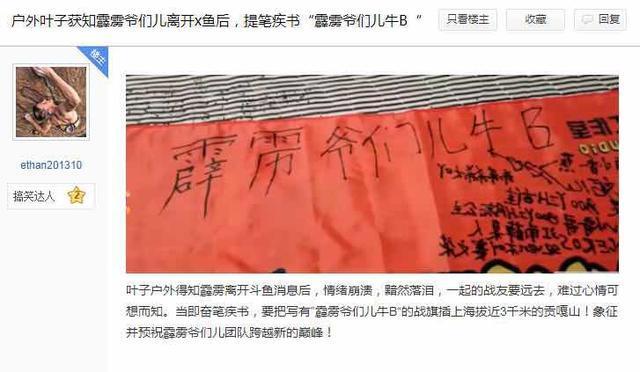 户外叶子获知霹雳爷们儿离开x鱼后，提笔疾书“霹雳爷们儿牛B＂
只看楼主
收藏
回复
楼主
霹雳爷们儿牛B
ethan201310
搞笑达人
叶子户外得知霹雳离开斗鱼消息后，情绪崩溃，黯然落泪，一起的战友要远去，难过心情可
想而知。当即奋笔疾书，要把写有"霹雳爷们儿牛B"的战旗插上海拔近3千米的贡嘎山！象征
并预祝霹雳爷们儿团队跨越新的巅峰！